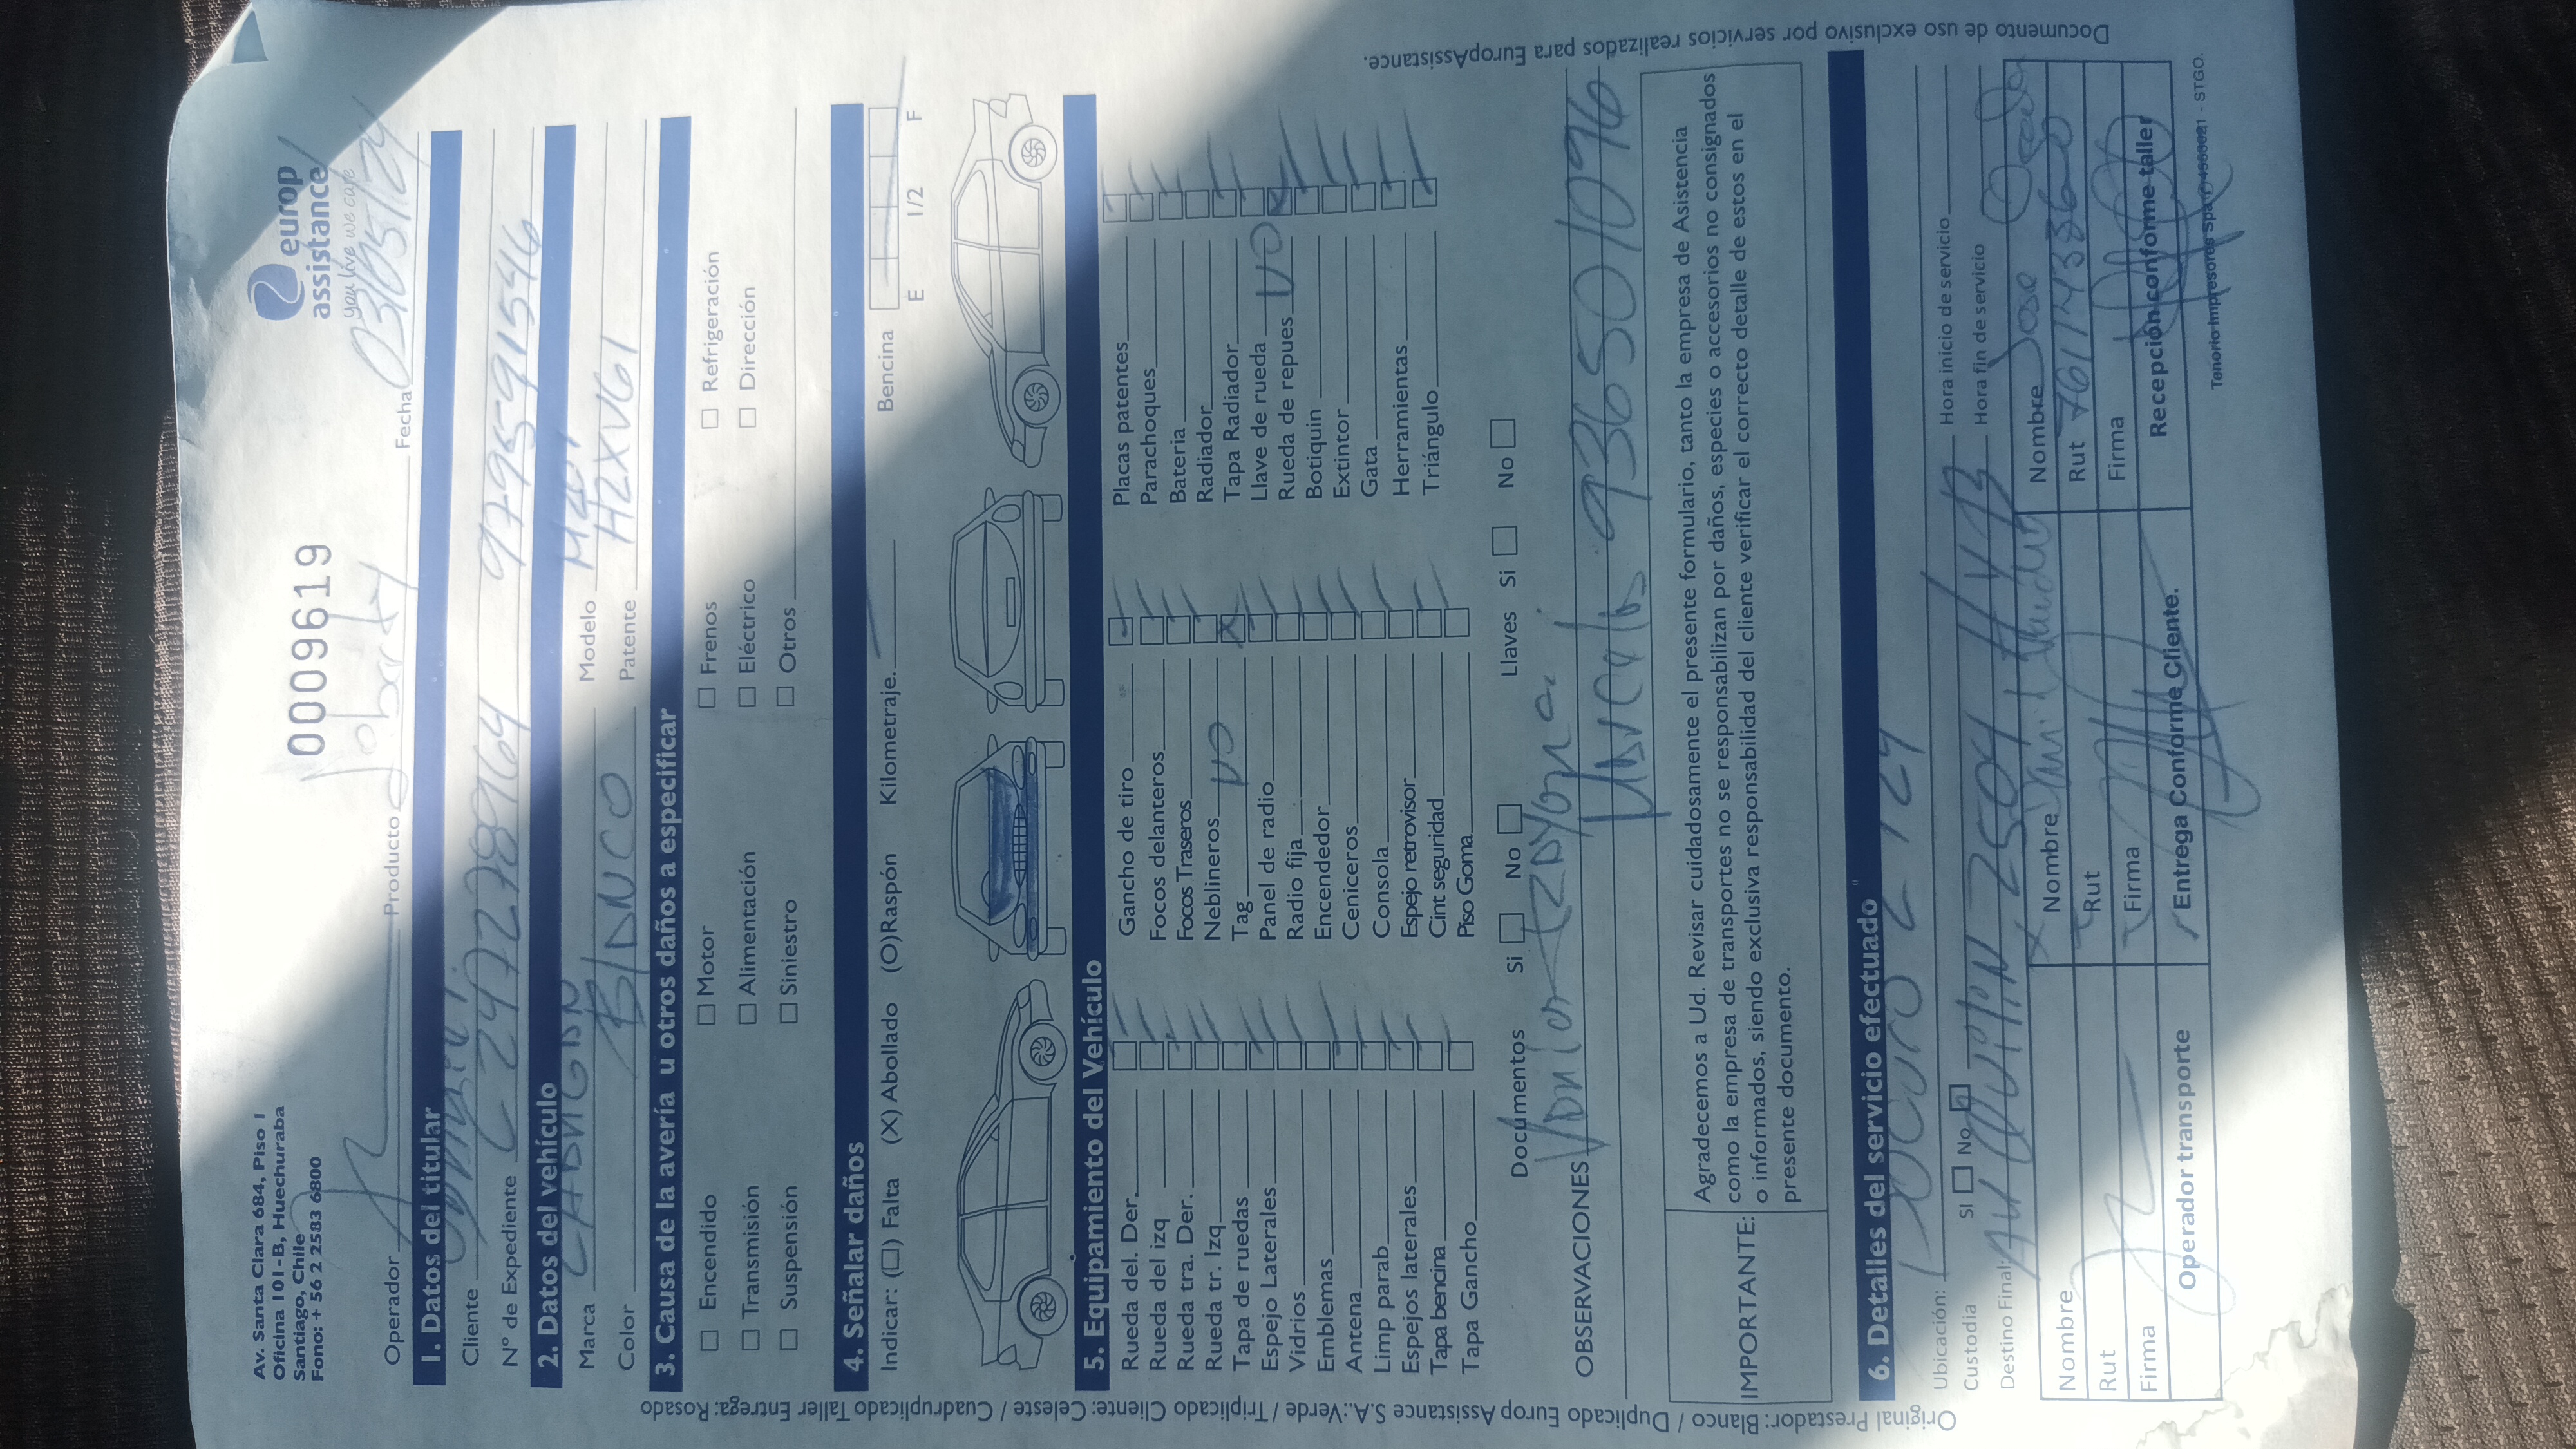 Av. Santa Clara 684, Piso 1
Oficina 101-B, Huechuraba
Santiago, Chile
Fono: + 56 2 2583 6800
0009619
europ
assistance
you live we care
Operador Producto Fecha 03/05/24
1. Datos del titular
Cliente
N° de Expediente
2. Datos del vehículo
Marca Modelo
Color BLANCO Patente HZXV61
3. Causa de la avería u otros daños a especificar
Encendido Motor Frenos Refrigeración
Transmisión Alimentación Eléctrico Dirección
Suspensión Siniestro Otros
4. Señalar daños
Indicar: (☐) Falta (X) Abollado (O)Raspón Kilometraje. Bencina E 1/2 F
5. Equipamiento del Vehículo
Rueda del. Der. Gancho de tiro Placas patentes
Rueda del izq Focos delanteros Parachoques
Rueda tra. Der. Focos Traseros Bateria
Rueda tr. Izq Neblineros Radiador
Tapa de ruedas Tag NO Tapa Radiador
Espejo Laterales Panel de radio Llave de rueda
Vidrios Radio fija Rueda de repues NO
Emblemas Encendedor Botiquin
Antena Ceniceros Extintor
Limp parab Consola Gata
Espejos laterales Espejo retrovisor Herramientas
Tapa bencina Cint seguridad Triángulo
Tapa Gancho Piso Goma
Documentos Si No Llaves Si No
OBSERVACIONES
936501096
IMPORTANTE: Agradecemos a Ud. Revisar cuidadosamente el presente formulario, tanto la empresa de Asistencia
como la empresa de transportes no se responsabilizan por daños, especies o accesorios no consignados
o informados, siendo exclusiva responsabilidad del cliente verificar el correcto detalle de estos en el
presente documento.
6. Detalles del servicio efectuado
Ubicación: Hora inicio de servicio
Custodia SI No Hora fin de servicio
Destino Final:
Nombre Nombre Nombre Jose
Rut Rut Rut
Firma Firma Firma
Operador transporte Entrega Conforme Cliente. Recepción conforme taller
Original Prestador: Blanco / Duplicado Europ Assistance S.A.:Verde / Triplicado Cliente: Celeste / Cuadruplicado Taller Entrega: Rosado
Documento de uso exclusivo por servicios realizados para EuropAssistance.